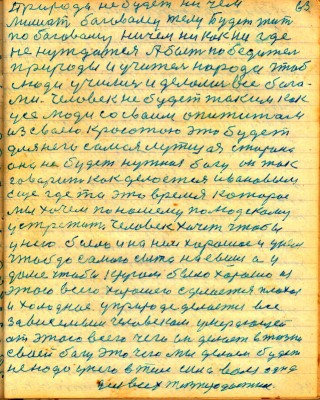 природа не будет ни чем 63
лишат багавому телу будет жит
по багавому ничем ни как ни где
не нуждатся А быт победител
природы и учител народа чтоб
люди училис и делалис все бога-
ми. человек не будет таким как
усе люди со своим опититам
из своею красотою это будет
для него самая лутшая старана
она не будет нужная богу он так
говарит как делоется ивановым
еще где та это время каторае
мы хочем по нашему по людскому
устретит человек хочет чтобы
у него было и на нем харошое и унем
чтоб до самого сыта наевшис а у
доме чтобы было харашо из
этого всего харошего сделается плохая
и холодное. у природе делается все
зависемым человеком умерающей
от этого всего чего он делает в жизни
своей богу это чего мы делаем будет
ненадо у него в теле сила воля одна
для всех